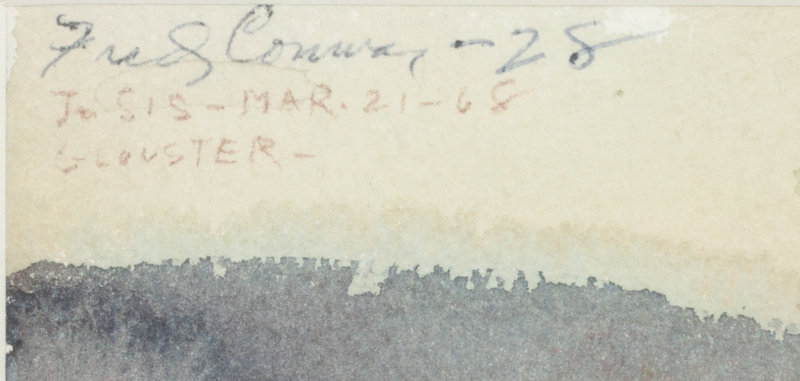 Fred Conway - 28
To SIS - MAR. 21 - 68
GLOUSTER -